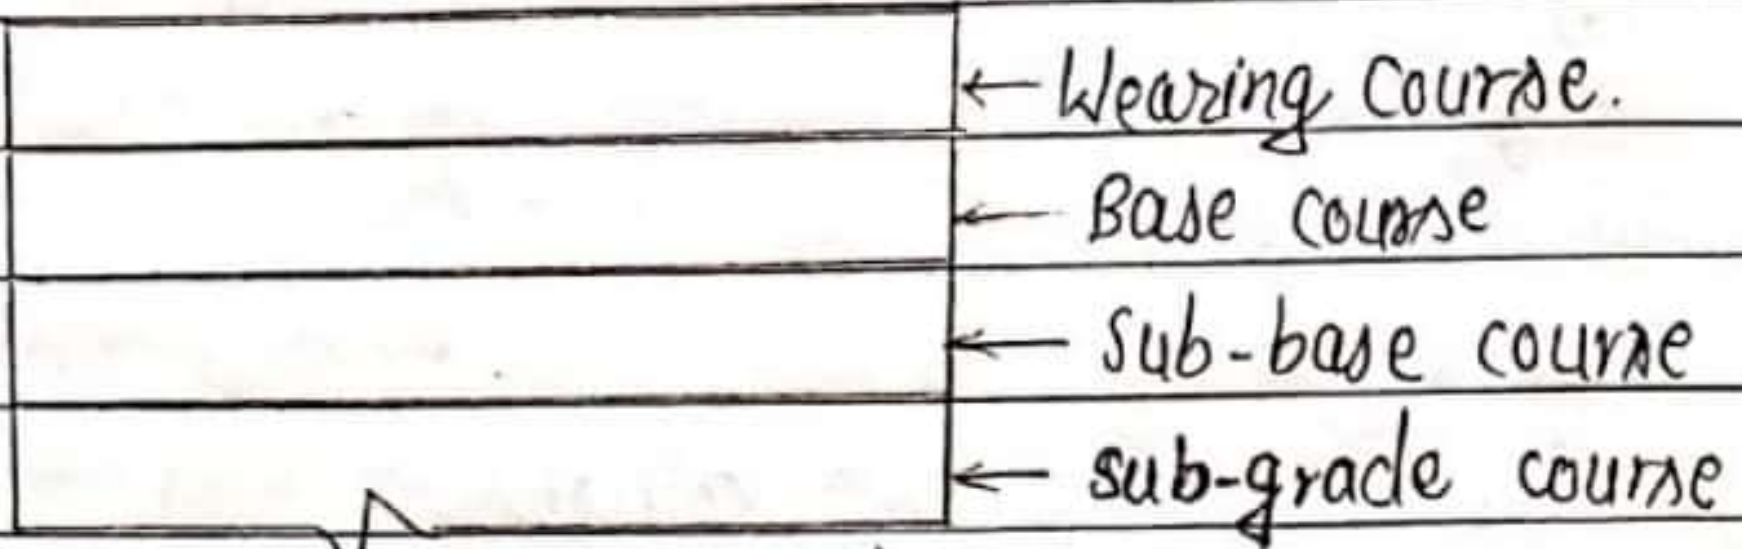 Wearing Course.
Base course
Sub-base course
sub-grade course